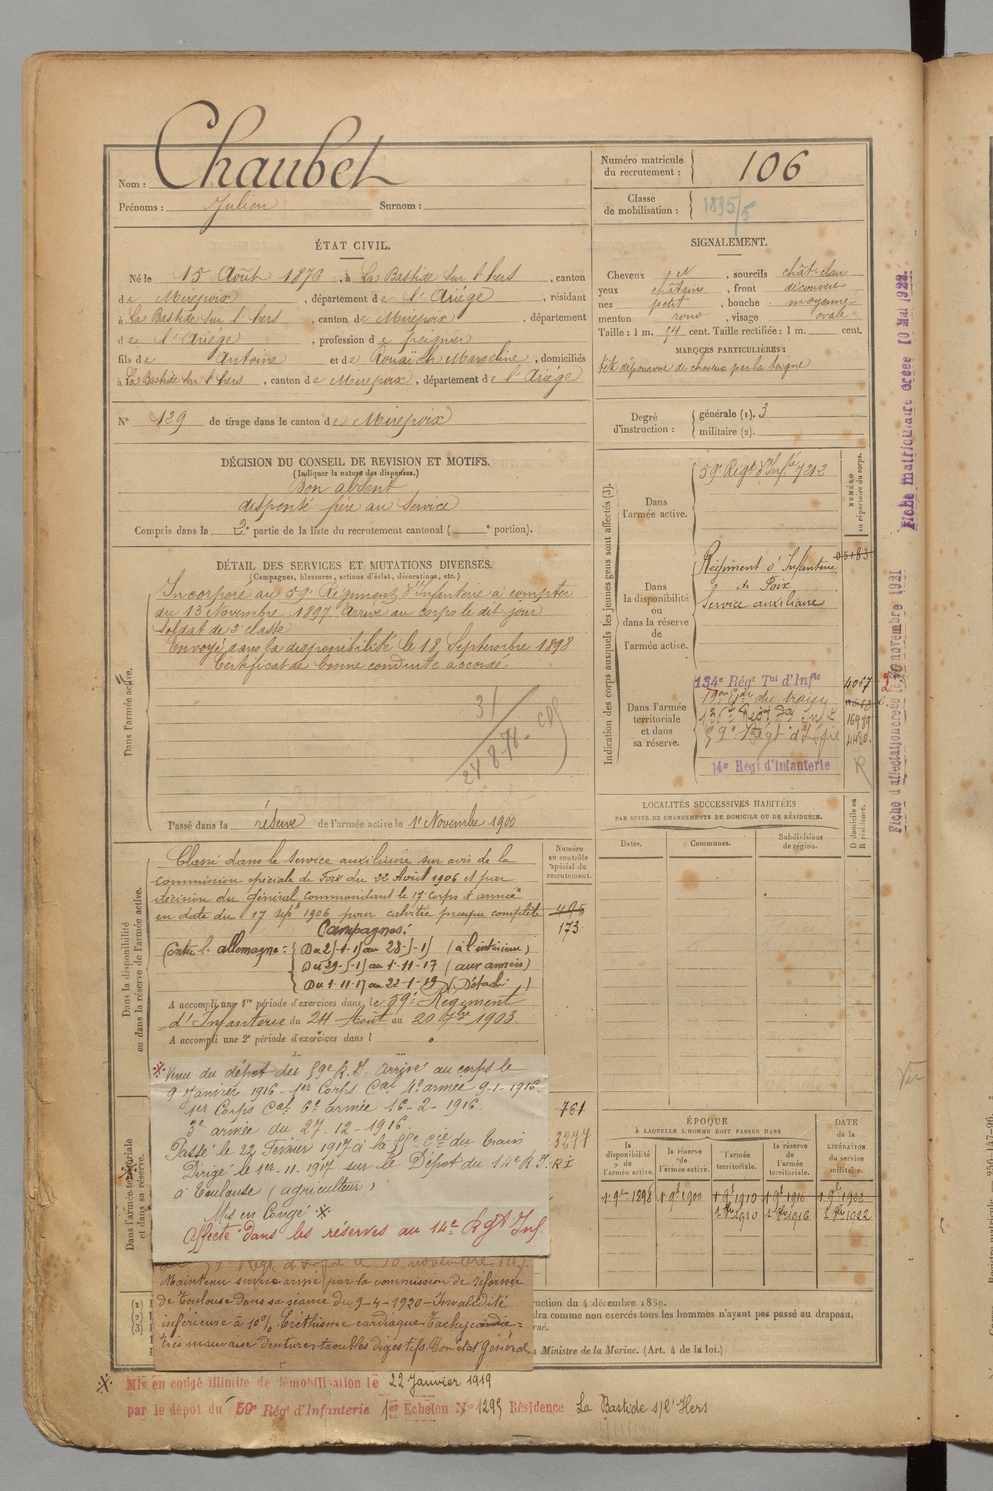 Nom : Chaubet
Prénoms : Julien Surnom :
Numéro matricule du recrutement : 106
Classe de mobilisation : 1895/5
ÉTAT CIVIL.
Né le 15 Août 1876, à La Bastide sur l'hers, canton
de Mirepoix, département de l'Ariège, résidant
à La Bastide sur l'hers, canton de Mirepoix, département
de l'Ariège, profession de peignier
fils de Antoine et de Marceline, domiciliés
à La Bastide sur l'hers, canton de Mirepoix, département de l'Ariège
N° 129 de tirage dans le canton de Mirepoix
SIGNALEMENT.
Cheveux , sourcils chât. clair
yeux châtains, front découvert
nez petit, bouche moyenne
menton rond, visage ovale
Taille : 1 m. 54 cent. Taille rectifiée : 1 m. cent.
MARQUES PARTICULIÈRES :
tête dépourvue de cheveux par la teigne
Degré d'instruction : générale (1). 3
militaire (2).
DÉCISION DU CONSEIL DE REVISION ET MOTIFS.
(Indiquer la nature des dispenses.)
Bon absent
dispensé frère au service
Compris dans la 2e partie de la liste du recrutement cantonal ( e portion).
DÉTAIL DES SERVICES ET MUTATIONS DIVERSES.
(Campagnes, blessures, actions d'éclat, décorations, etc.)
Dans l'armée active.
Incorporé au 59e Régiment d'Infanterie à compter
du 13 Novembre 1897 Arrivé au corps le dit jour
Soldat de 2e classe
Envoyé dans la disponibilité le 18 Septembre 1898
Certificat de bonne conduite accordé
31
Passé dans la réserve de l'armée active le 1er Novembre 1900
Indication des corps auxquels les jeunes gens sont affectés (3).
NUMÉRO au répertoire du corps.
Dans l'armée active.
59e Régt d'Infie 7212
Dans la disponibilité ou dans la réserve de l'armée active.
Régiment d'Infanterie
de Foix
Service auxiliaire
Dans l'armée territoriale et dans sa réserve.
134e Régt Tal d'Infie 4067
du train
59e Régt d'Infie
14e Regt d'Infanterie
R
Fiche matriculaire créée 10 Mai 1922.
Fiche d'affectation créée novembre 1921
LOCALITÉS SUCCESSIVES HABITÉES
PAR SUITE DE CHANGEMENTS DE DOMICILE OU DE RÉSIDENCE.
Dates. Communes. Subdivisions de région. D domicile ou R résidence.
Dans la disponibilité ou dans la réserve de l'armée active.
Numéro au contrôle spécial du recrutement.
Classé dans le service auxiliaire sur avis de la
commission spéciale de Foix du 22 Août 1906 et par
décision du Général commandant le 17e corps d'armée
en date du 17 sept 1906 pour calvitie presque complète
173
Campagnes :
Contre l'allemagne : (à l'intérieur)
(aux armées)
Du 1-11-17 au 22-1-19 (Détaché)
A accompli une 1re période d'exercices dans le 59e Régiment
d'Infanterie du 24 Août au 20 7bre 1903.
A accompli une 2e période d'exercices dans l
Venu du dépôt du 59e R.I. arrivé au corps le
9 Janvier 1916 - 1er Corps Cal 4e armée 9-1-1916.
1er Corps Cal 6e armée 16-2-1916.
3e armée du 27-12-1916.
Passé le 22 Février 1917 à la Cie du Train
Dirigé le 1er-11-1917 sur le Dépôt du 14e R.I. RI
à Toulouse (agriculteur)
Mis en Congé
Affecté dans les réserves au 14e Rgt Inf.
761
3277
Dans l'armée territoriale et dans sa réserve.
ÉPOQUE
À LAQUELLE L'HOMME DOIT PASSER DANS
la disponibilité de l'armée active. la réserve de l'armée active. l'armée territoriale. la réserve de l'armée territoriale.
DATE de la LIBÉRATION du service militaire.
1er 9bre 1898 1er 9bre 1900 1er 9bre 1910 1er 9bre 1916 1er 9bre 1922
Maintenu service armé par la commission de réforme
de Toulouse dans sa séance du 9-4-1920 - Invalidité
inférieure à 10% Eréthisme cardiaque
très mauvaise denture troubles digestifs. Bon état Général
uction du 4 décembre 1889.
dra comme non exercés tous les hommes n'ayant pas passé au drapeau.
Ministre de la Marine. (Art. 4 de la loi.)
Mis en congé illimité de démobilisation le 22 Janvier 1919
par le dépôt du 59e Régt d'Infanterie 1er Echelon N° 1295 Résidence La Bastide s/l'Hers